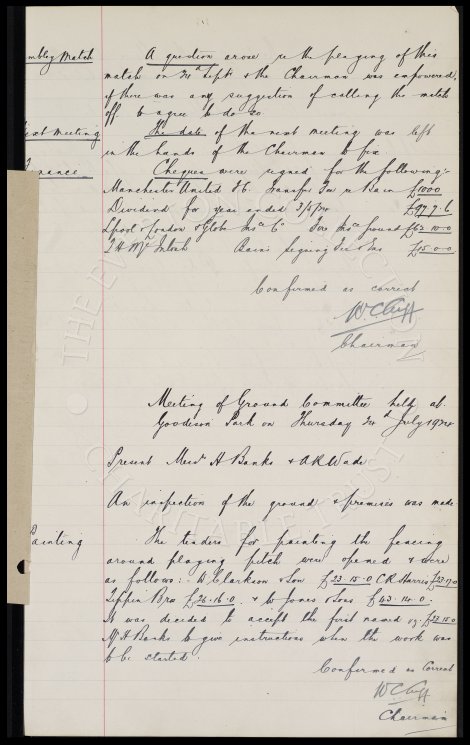 mbley Match
A question arose re the playing of this
match on 24th Sept & the Chairman was empowered,
if there was any suggestion of calling the match
off to agree to do so
ext meeting
The date of the next meeting was left
in the hands of the Chairman to fix.
inance
Cheques were signed for the following:-
Manchester United F.C. Transfer Fee re Bain £1000
Dividend for year ended 3/5/24 £97.7.6
Lpool & London & Globe Insce Co Fire Insce ground
J. H. McIntosh Bain signing Fee & Exs £15-0-0
Confirmed as correct
W.C. Cuff
Chairman
Meeting of Ground Committee held at
Goodison Park on Thursday July 1924
Present Messrs H Banks & A R Wade
An inspection of the ground & premises was made
Painting
The tenders for painting the fencing
around playing pitch were opened & were
as follows:- W Clarkson & Son £23.15.0 C.R. Harris
Tippin Bros £26.16.0. & W Jones & Sons £43.12.0.
It was decided to accept the first named vz. £23.15.0
Mr H Banks to give instructions when the work was
to be started.
Confirmed as correct
W.C. Cuff
Chairman
THE EVERTON COLLECTION
CHARITABLE TRUST